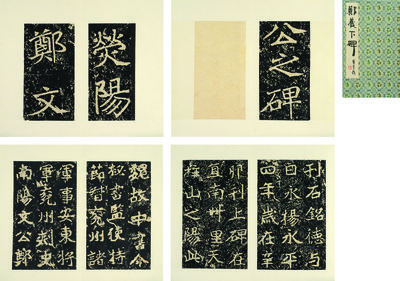 熒陽
鄭文
公之碑
鄭羲下碑
魏故中書令
秘書監使持
節督兗州諸
軍事安東將
軍兗州刺史
南陽文公鄭
刊石銘德与
日永揚永平
四年歲在辛
卯刊上碑在
直南卌里天
柱山之陽此